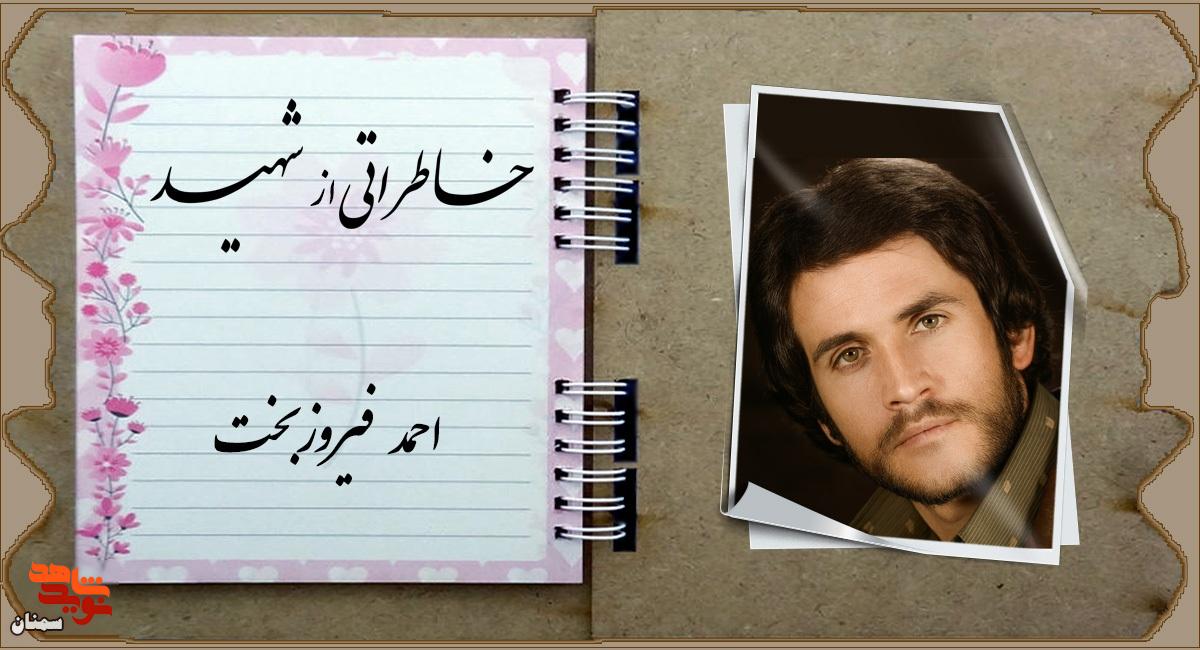 خاطراتی از شهید
احمد فیروزبخت
نوید شاهد
سمنان